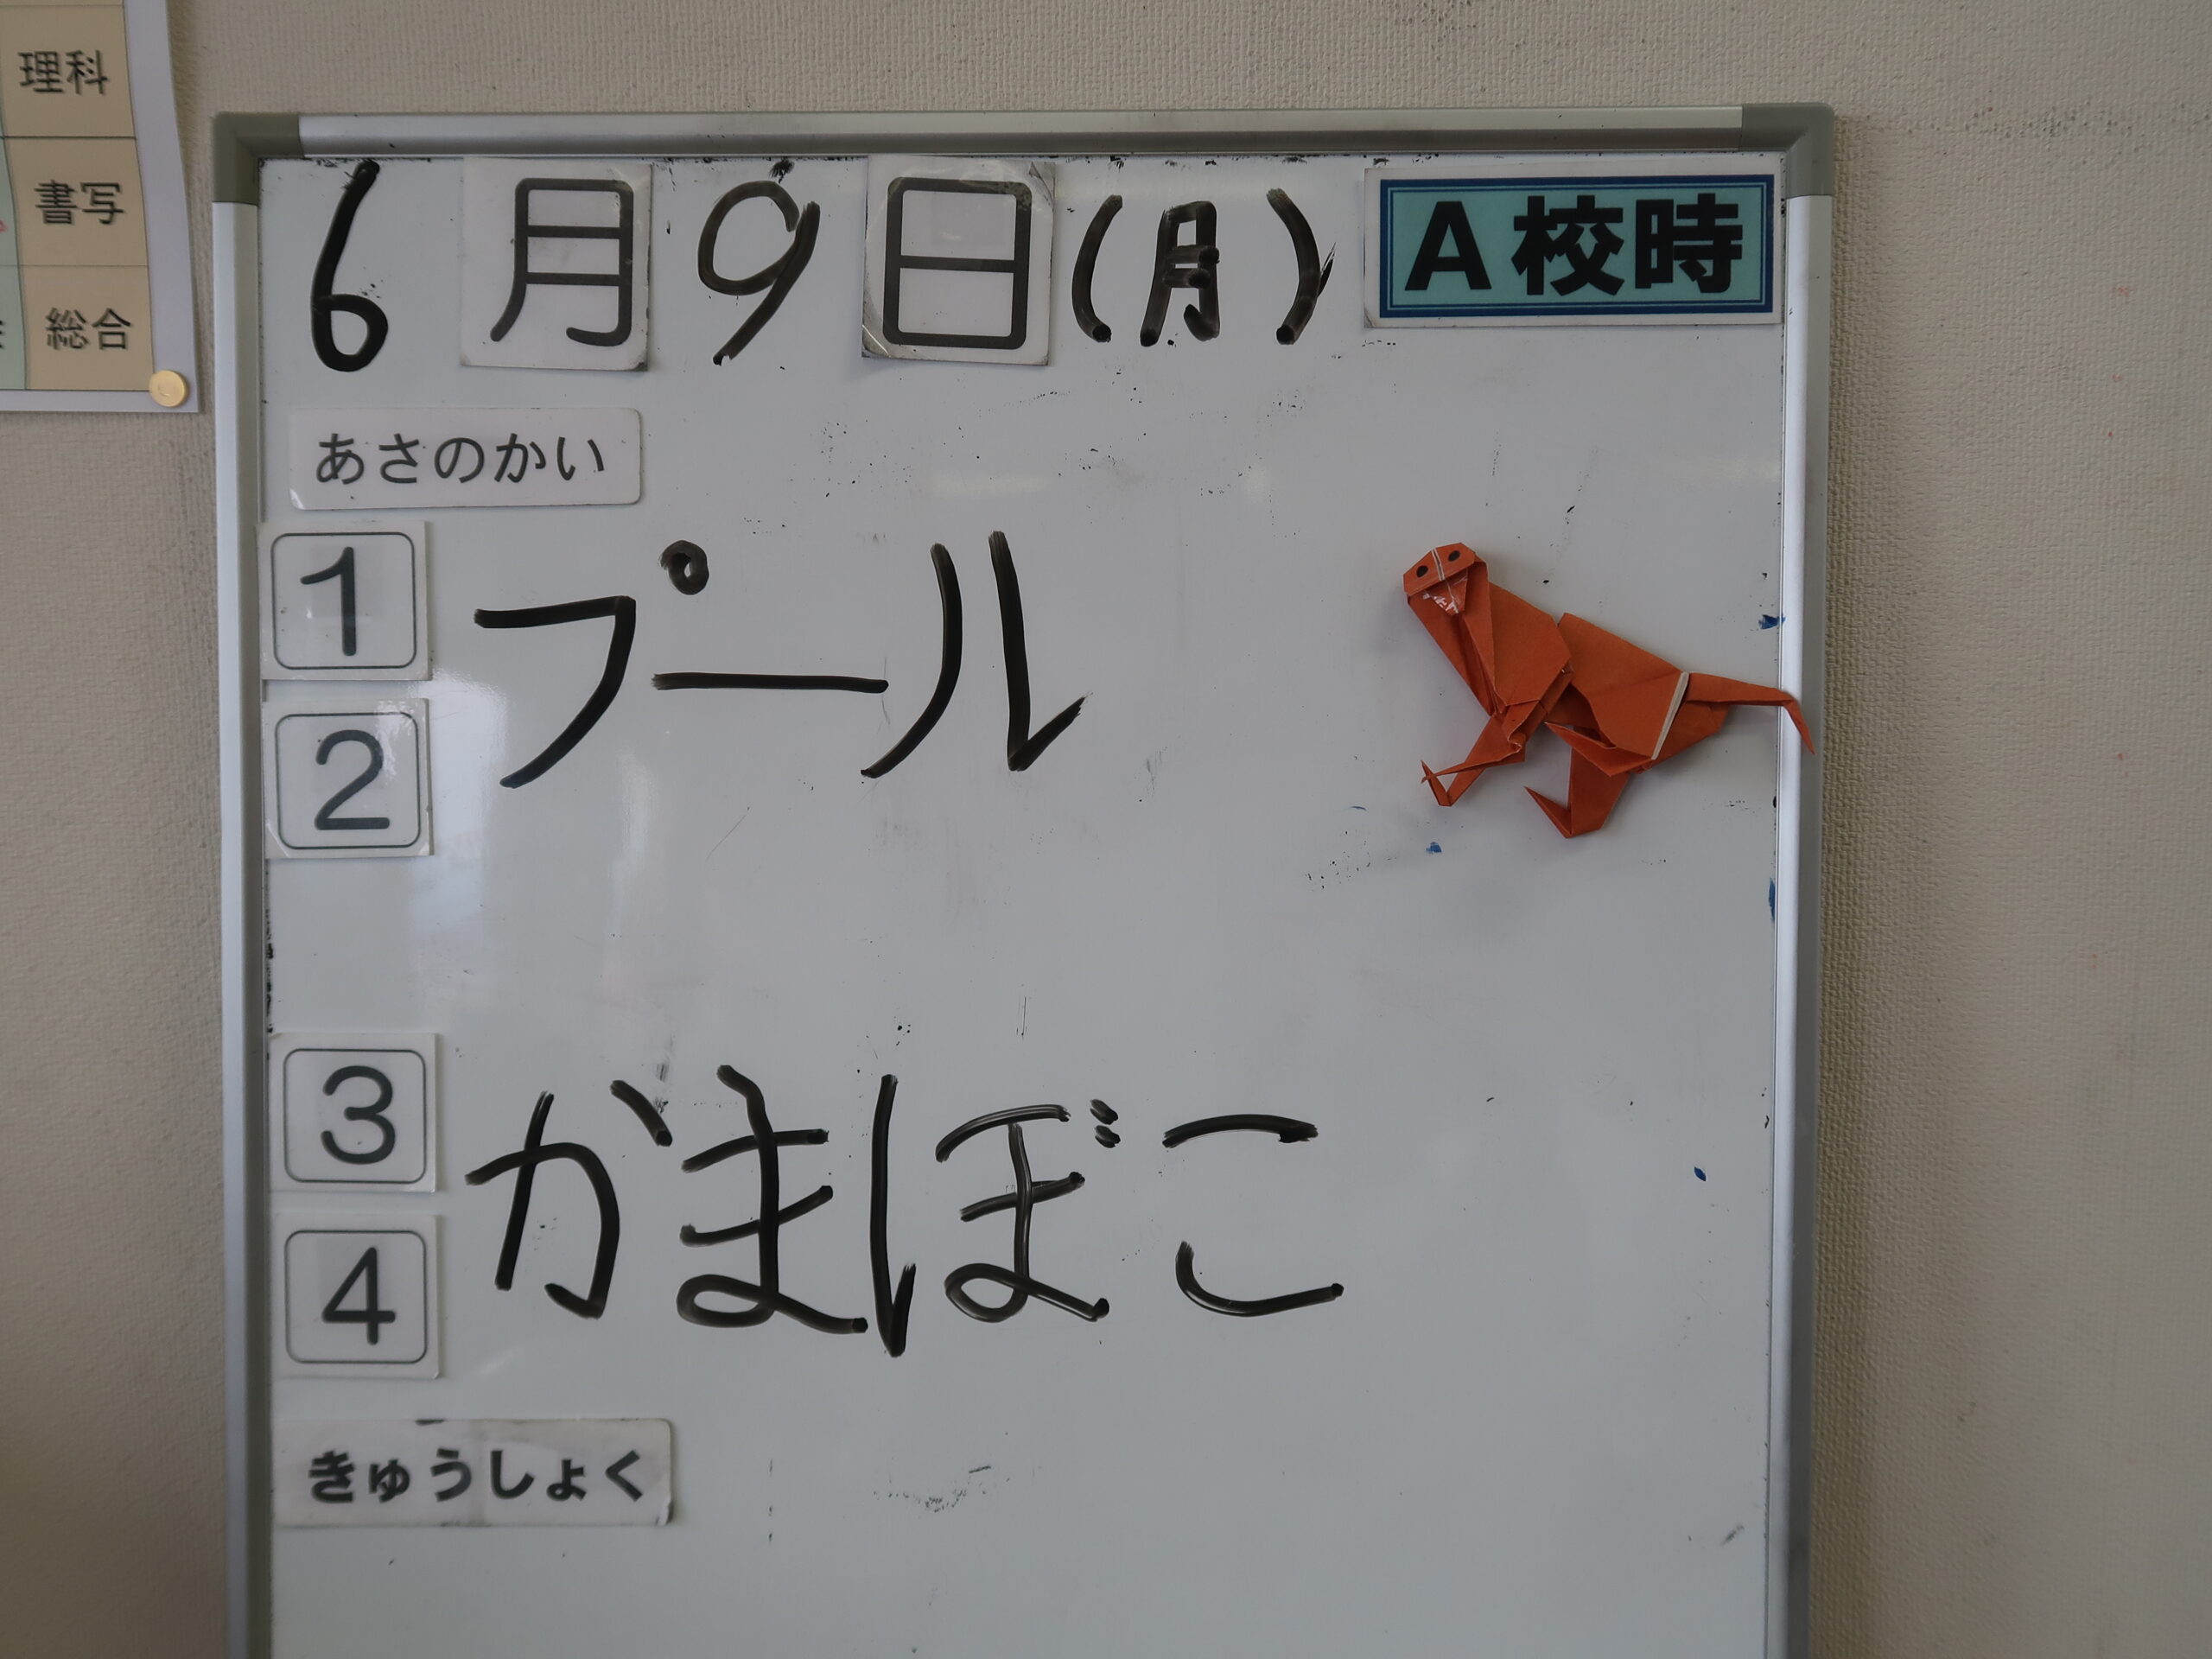 理科
書写
総合
6月9日(月) A校時
あさのかい
1 プール
2
3 かまぼこ
4
きゅうしょく